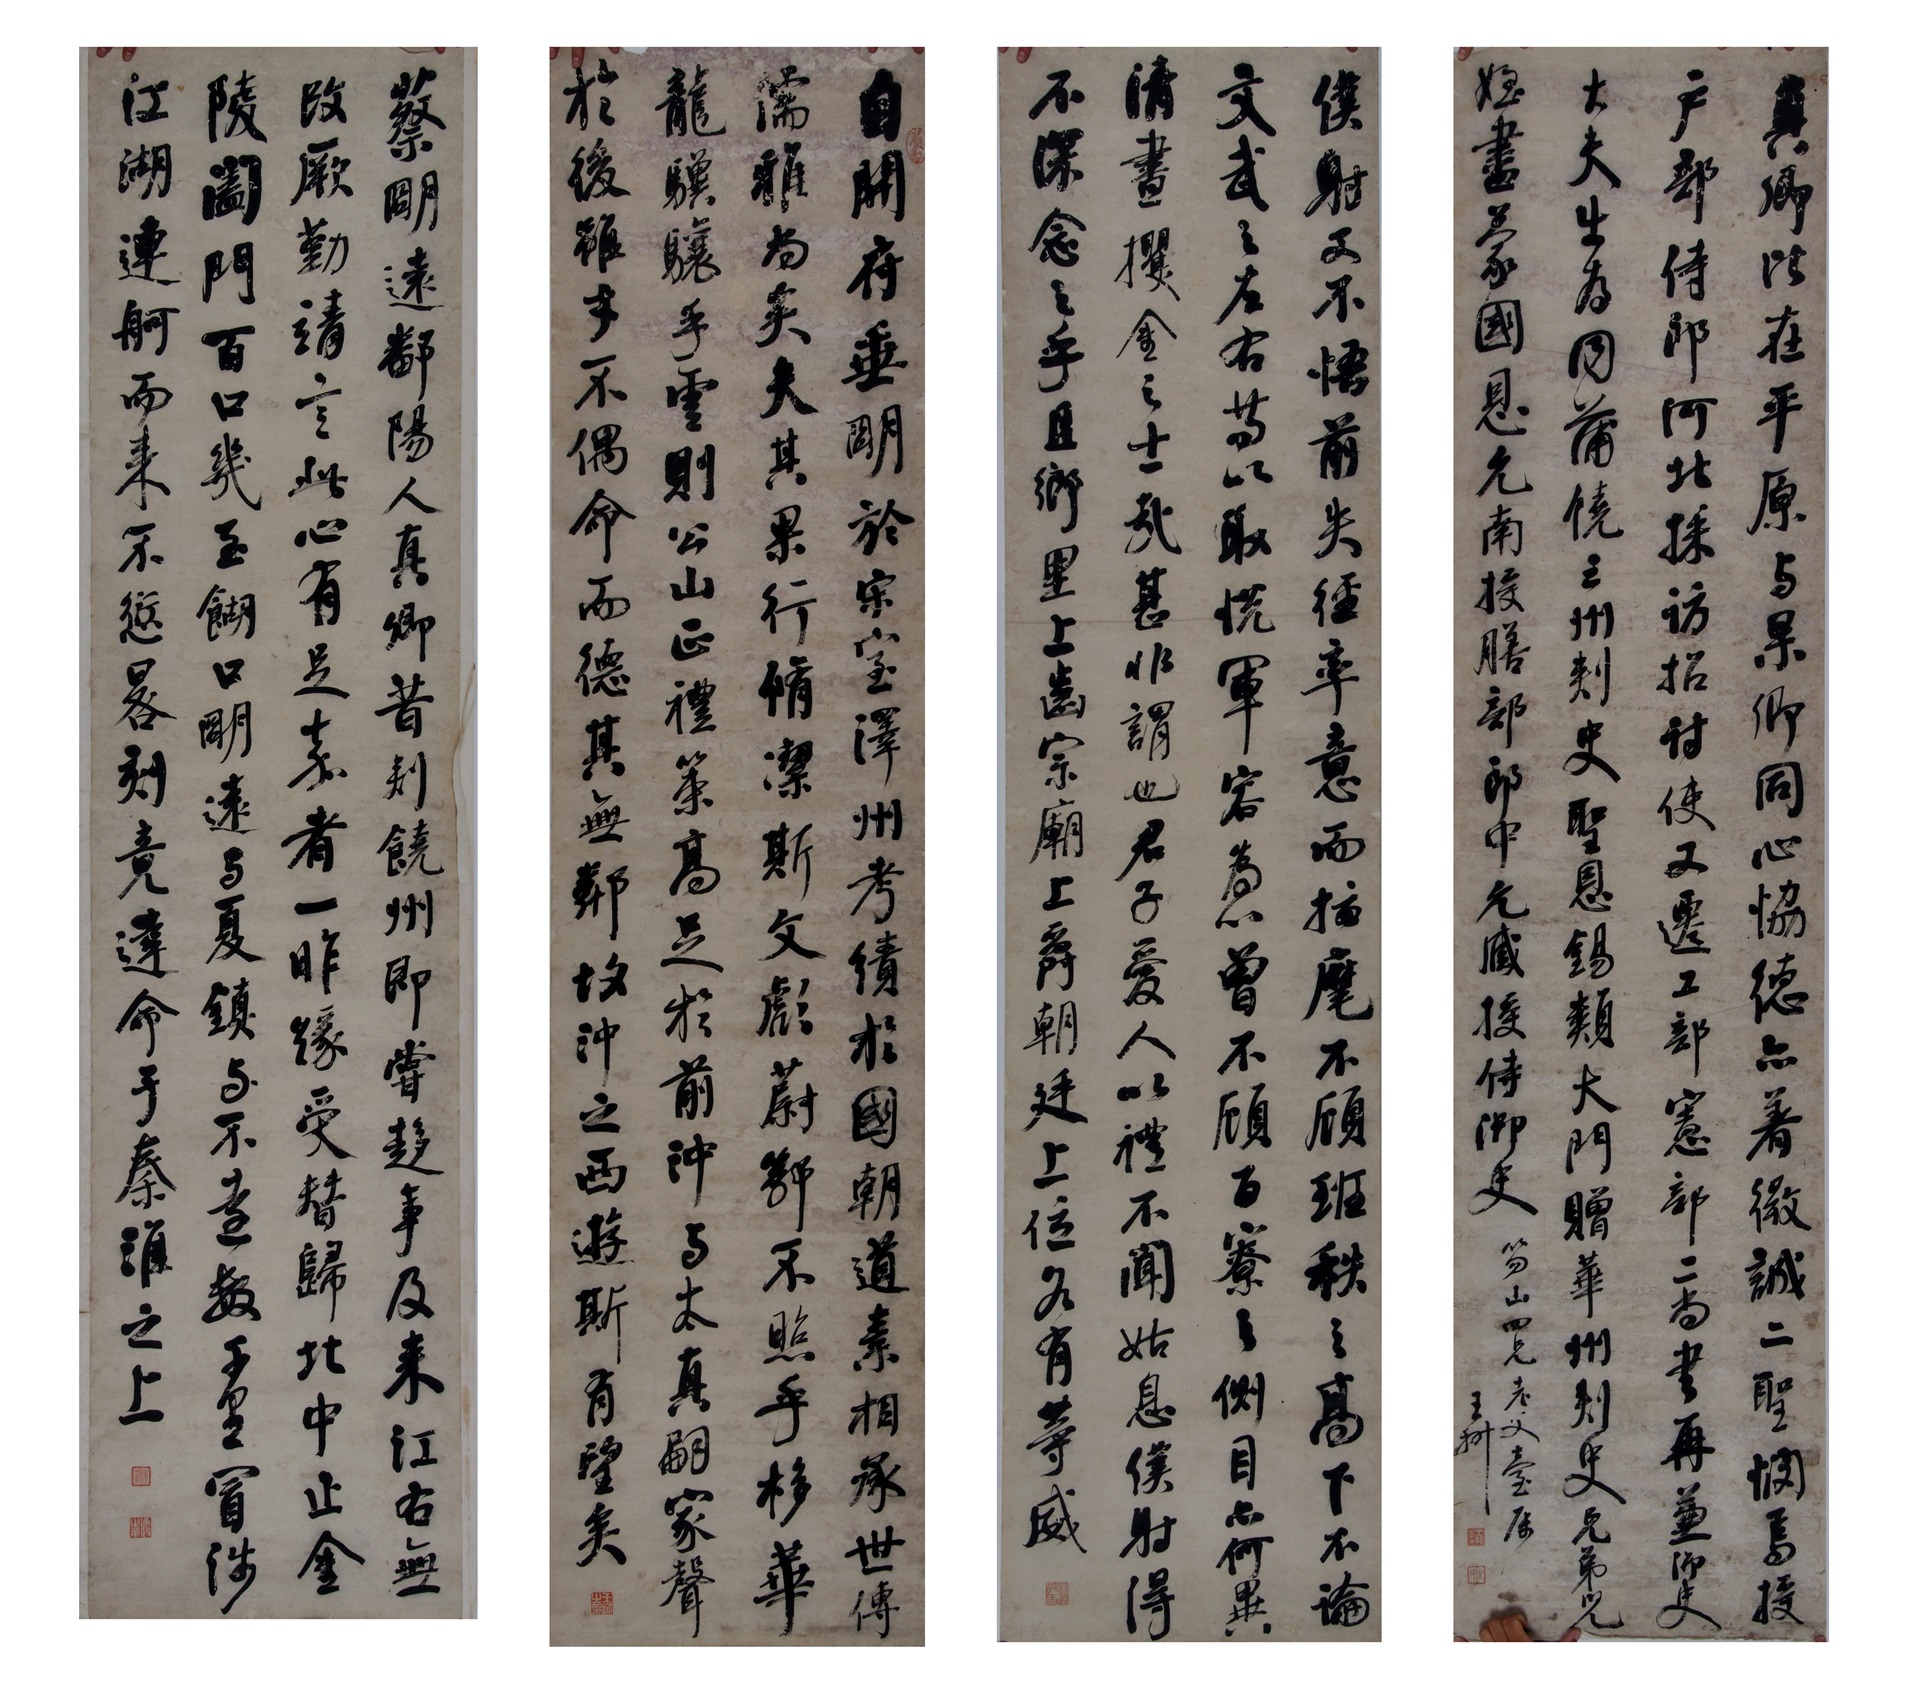 蔡明遠鄱陽人真卿昔刺饒州即嘗趍事及来江右無
改厥勤靖言此心有足嘉者一昨緣受替歸北中止金
陵闔門百口幾至餬口明遠与夏鎮与不遠數千里冒涉
江湖連舸而来不愆晷刻竟達命于秦淮之上
自開府垂明於宋室澤州考績於國朝道素相承世傳
儒雅尚矣夫其果行脩潔斯文彪蔚鄂不照乎栘華
龍驥驤乎雲則公山正禮策高足於前沖与太真嗣家聲
於後雖才不偶命而德其無鄰故沖之西遊斯有望矣
僕射又不悟前失徑率意而指麾不顧班秩之高下不論
文武之左右苟以取悅軍容為心曾不顧百寮之側目亦何異
清晝攫金之士哉甚非謂也君子愛人以禮不聞姑息僕射得
不深念之乎且鄉里上齒宗廟上爵朝廷上位各有等威
真卿比在平原与杲卿同心恊德亦著微誠二聖憫焉授
户部侍郎河北採訪招討使又遷工部憲部二尚書再兼御史
大夫出為同蒲饒三州刺史聖恩錫類大門贈華州刺史兄弟兒
姪盡蒙國恩允南授膳部郎中允臧授侍御史
笏山四兄老父臺属
王澍